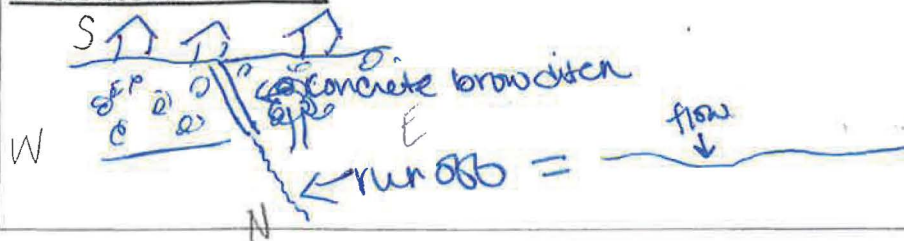 S
concrete browditch
flow
W
E
runoff =
N